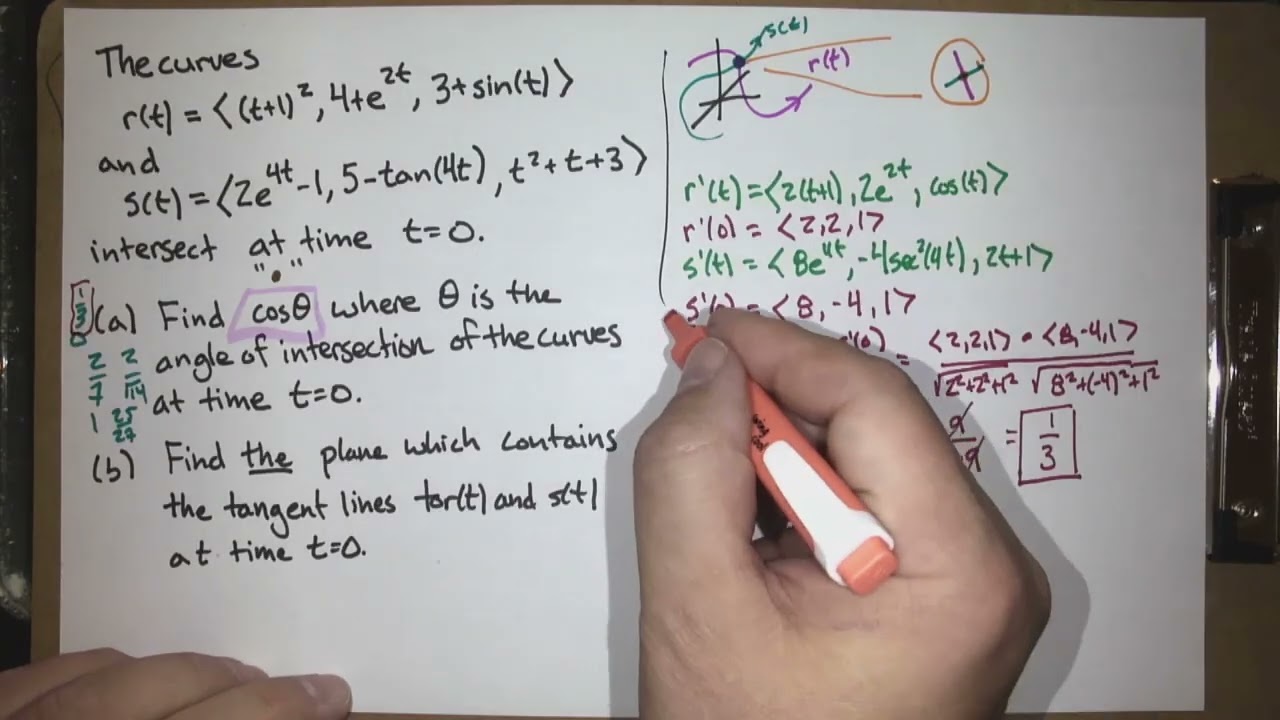 The curves
r(t) = ⟨(t+1)², 4+e^{2t}, 3+sin(t)⟩
and
s(t) = ⟨2e^{4t}-1, 5-tan(4t), t²+t+3⟩
intersect at time t=0.
" • "
(a) Find cosθ where θ is the
angle of intersection of the curves
at time t=0.
(b) Find the plane which contains
the tangent lines to r(t) and s(t)
at time t=0.
1/3
0
2/7 2/√14
1 25/27
s(t)
r(t)
r'(t) = ⟨2(t+1), 2e^{2t}, cos(t)⟩
r'(0) = ⟨2,2,1⟩
s'(t) = ⟨8e^{4t}, -4sec²(4t), 2t+1⟩
s'(0) = ⟨8, -4, 1⟩
'(0) = ⟨2,2,1⟩ • ⟨8,-4,1⟩ / √2²+2²+1² √8²+(-4)²+1²
= 1/3